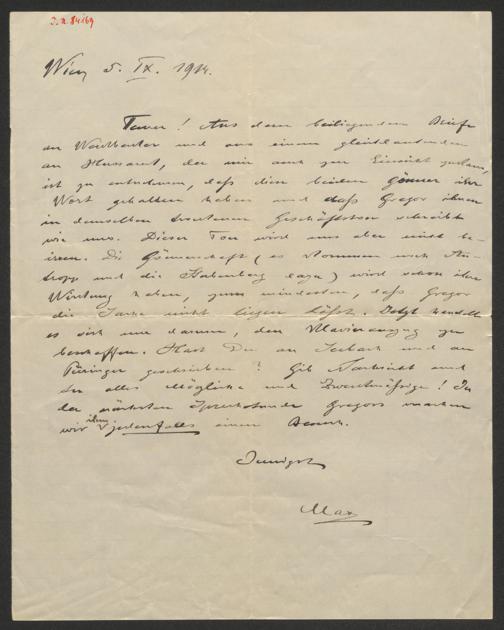 J.N. 84169
Wien 5. IX. 1914.
! Aus dem beiliegenden Briefe
an und aus einem gleichlautenden
an Hussarek, der mir auch zur Einsicht
ist zu entnehmen, daß diese beiden Gönner ihr
Wort gehalten haben und daß Gregor ihnen
in demselben Geschäftston schreibt
wie uns. Dieser Ton wird uns aber nicht be-
irren. Die Gönnerschaft (es kommen noch
und die dazu) wird schon ihre
Wirkung haben, zum mindesten, daß Gregor
die Sache nicht liegen läßt. Jetzt handelt
es sich nur darum, den Klavierauszug zu
beschaffen. Hast Du an Seebach und an
geschrieben? Gib Nachricht und
tu alles Mögliche und Zweckmäßige! In
der nächsten Sprechstunde Gregors machen
wir ihm jedenfalls einen Besuch.
Innigst
Max